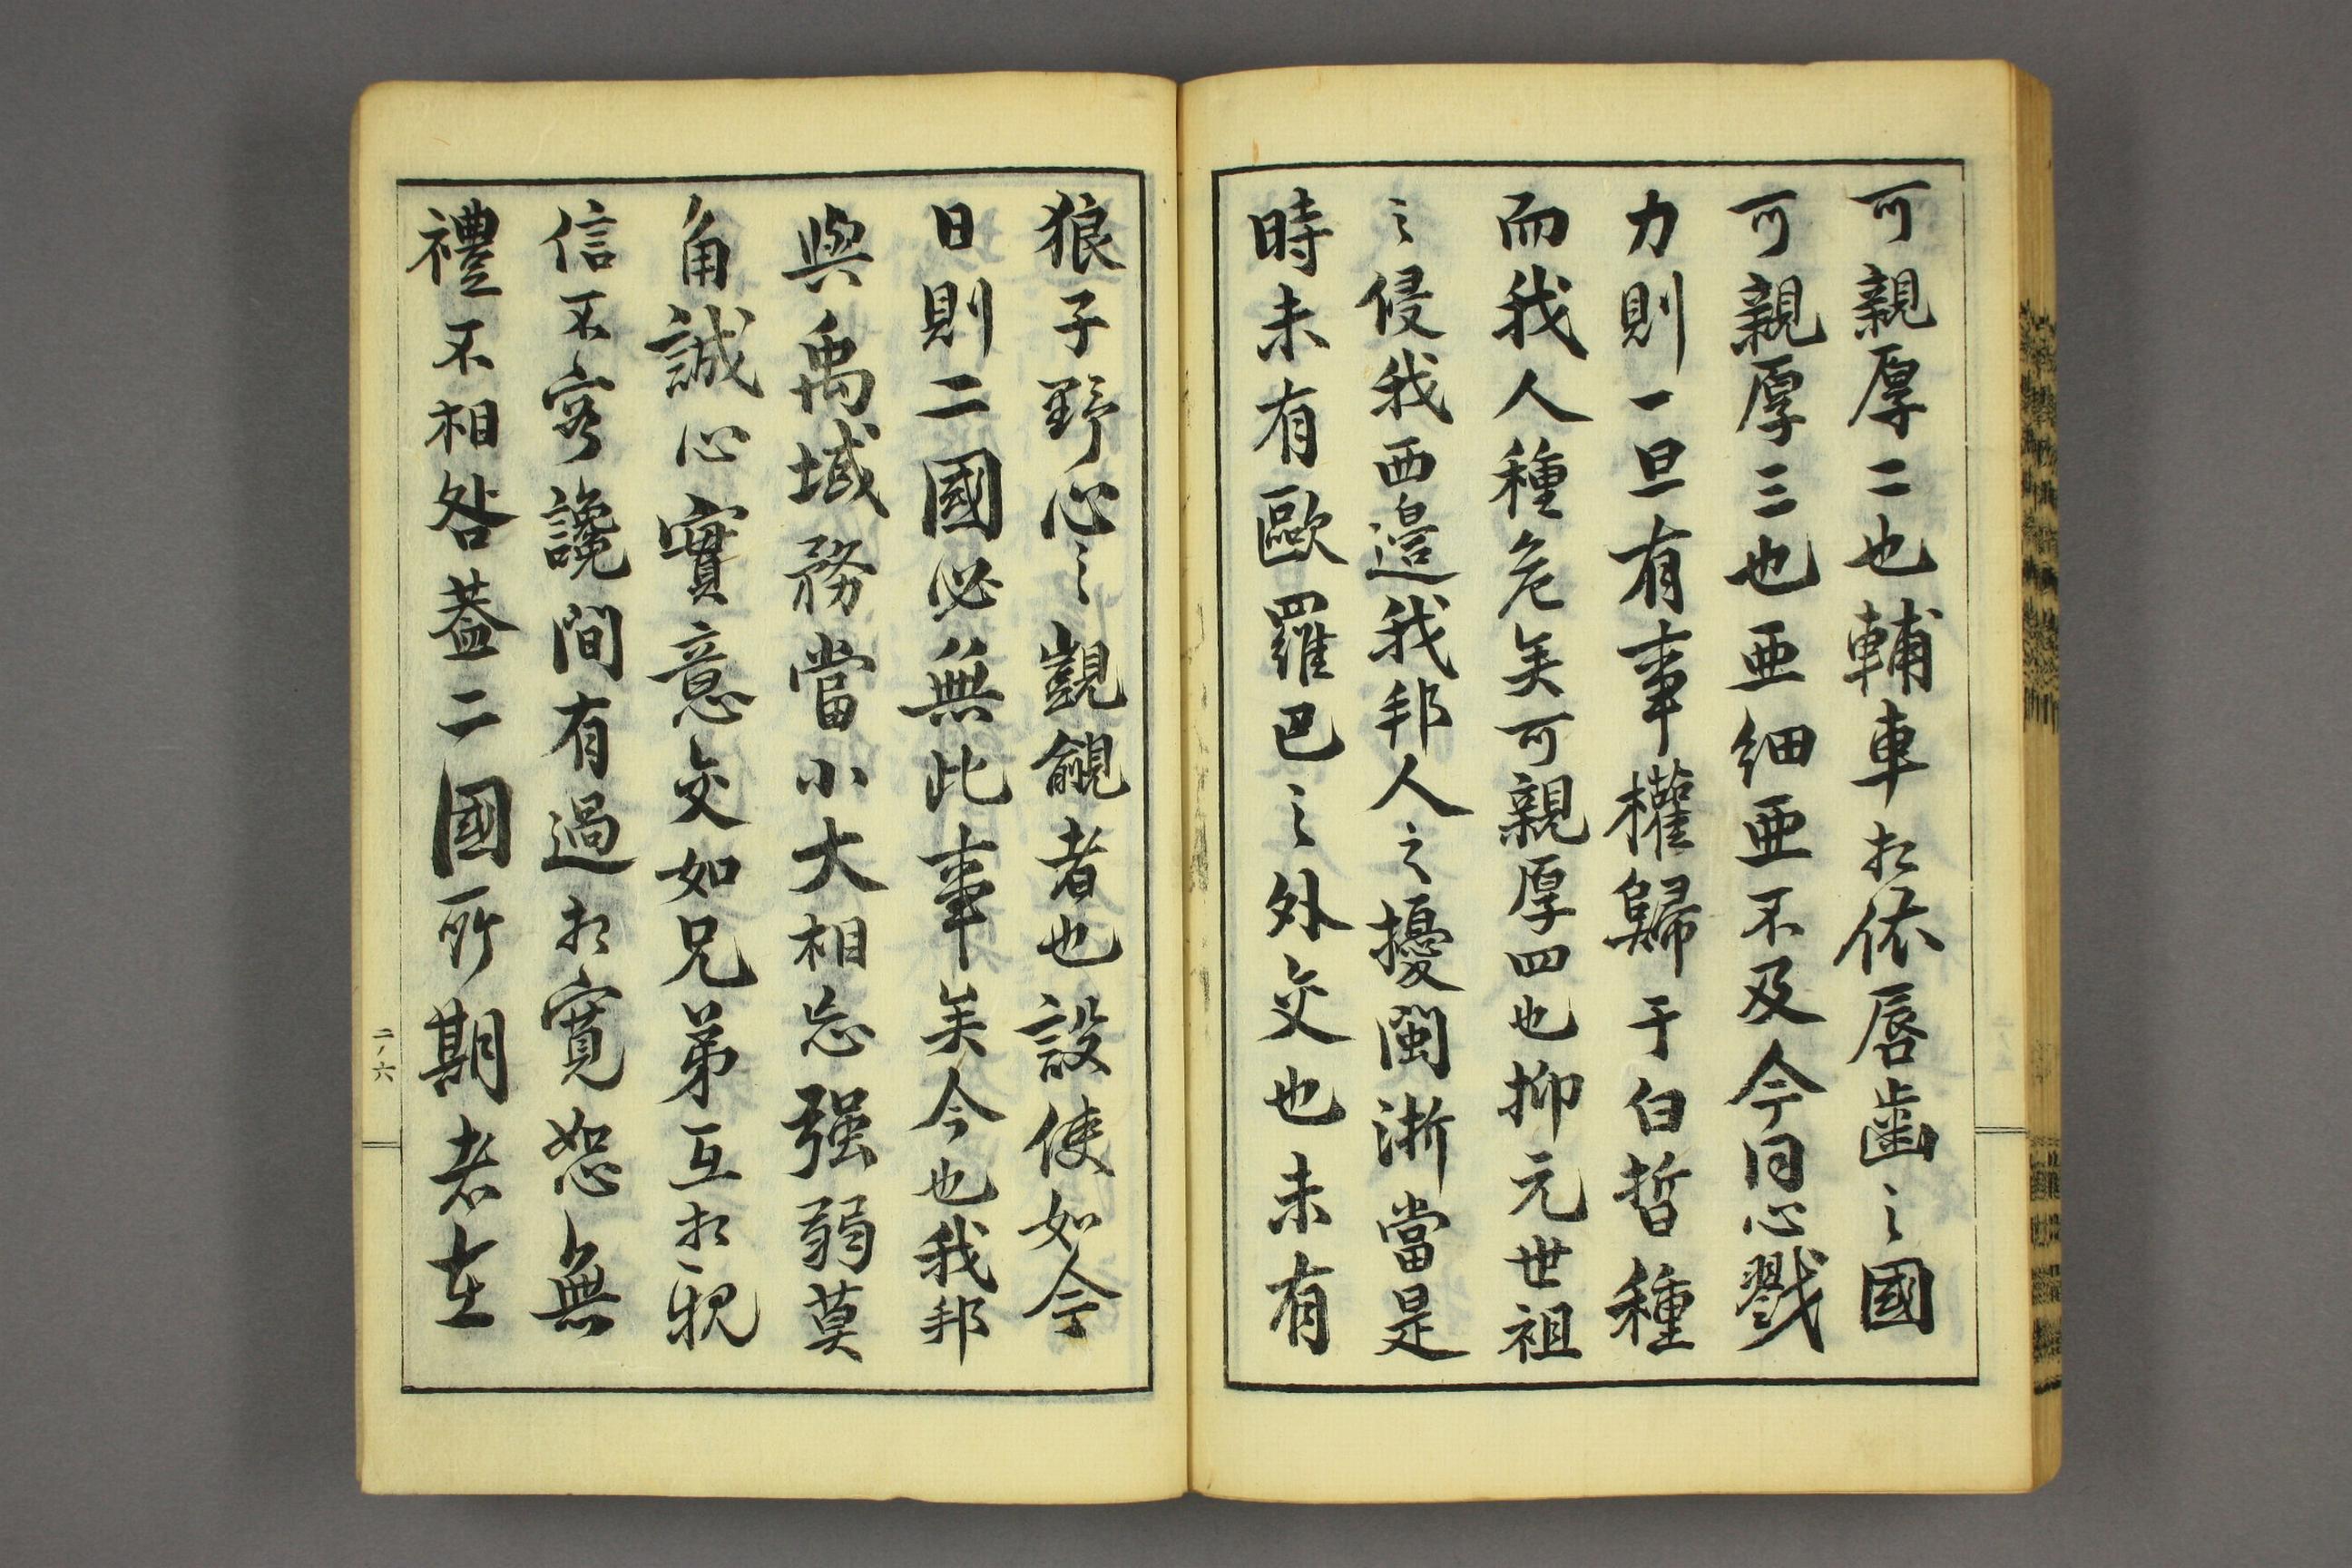 可親厚二也輔車相依唇齒之國
可親厚三也亜細亜不及今同心戮
力則一旦有事權歸于白晳種
而我人種危矣可親厚四也抑元世祖
之侵我西邉我邦人之擾閩浙當是
時未有歐羅巴之外交也未有
狼子野心之覬覦者也設使如今
日則二國必無此事矣今也我邦
與禹域務當小大相忘强弱莫
角誠心實意交如兄弟互相親
信不容讒間有過相寬恕無
禮不相咎葢二國所期者在
二ノ六